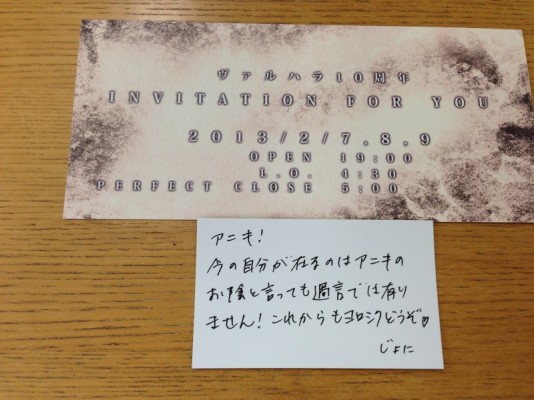 ヴァルハラ10周年
INVITATION FOR YOU
2013/2/7.8.9
OPEN 19:00
L.O. 4:30
PERFECT CLOSE 5:00
アニキ!
今の自分が在るのはアニキの
お陰と言っても過言では有り
ません!これからもヨロシクどうぞ♡
じょに